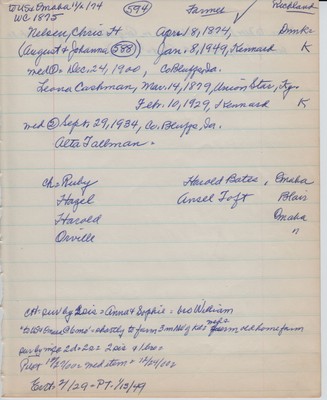 to USA Omaha 174 (594) Farmer ✓ Richland
WC 1875
Nelsen, Chris H Apr. 18, 1874, Dmk.
(August & Johanna (588)) Jan. 8, 1949, Kennard K
med ① Dec. 24, 1900, Co Bluffs, Ia.
Leona Cashman, Mar. 14, 1879, Union Star,
Feb. 10, 1929, Kennard K
med ② Sept. 29, 1934, Co. Bluffs, Ia.
Alta Tallman.
Ch: Ruby Harold Bates, Omaha
Hazel Ansel Toft Blair
Harold Omaha
Orville "
CH= surv by 2 sis = Anna & Sophie = bro William
to USA Omaha 8 mo = shortly to farm 3 mi of old home farm
surv by wife 2d = 2s = 2 sis & 1 bro =
med item =
Ent: 2/1/29 - PT- 1/13/49